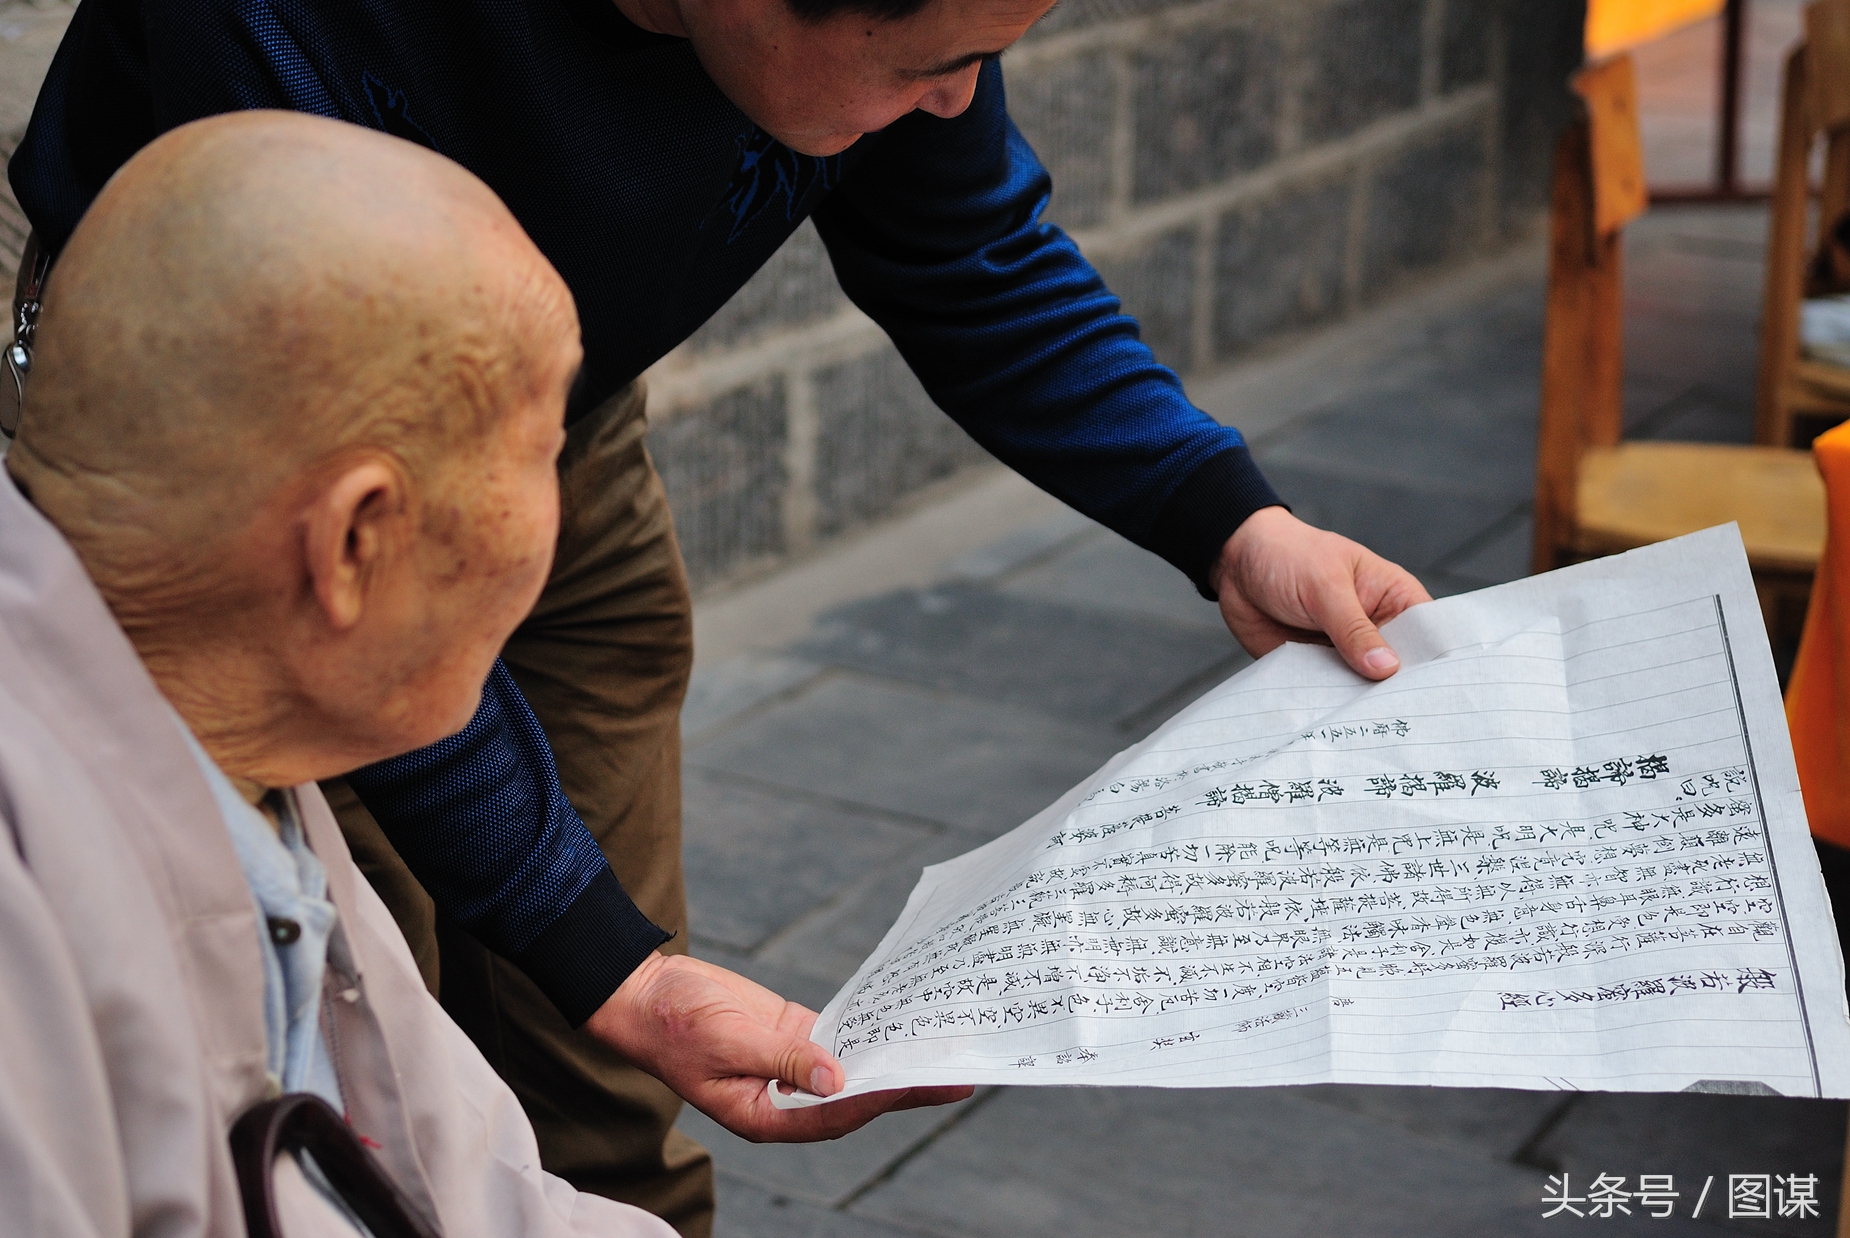 般若波羅蜜多心經
唐三藏法師玄奘奉詔譯
觀自在菩薩行深般若波羅蜜多時照見五蘊皆空度一切苦厄舍利子色不異空空不異色色即是
空空即是色受想行識亦復如是舍利子是諸法空相不生不滅不垢不淨不增不減是故空中無色無受
想行識無眼耳鼻舌身意無色聲香味觸法無眼界乃至無意識界無無明亦無無明盡乃至
無老死盡無智亦無得以無所得故菩提薩埵依般若波羅蜜多故心無罣礙無罣礙故
遠離顛倒夢想究竟涅槃三世諸佛依般若波羅蜜多故得阿耨多羅三藐三菩提
蜜多是大神呪是大明呪是無上呪是無等等呪能除一切苦真實不虛故說
說呪曰
揭諦揭諦 波羅揭諦 波羅僧揭諦 菩提薩婆訶
佛曆二五五一年
头条号 / 图谋